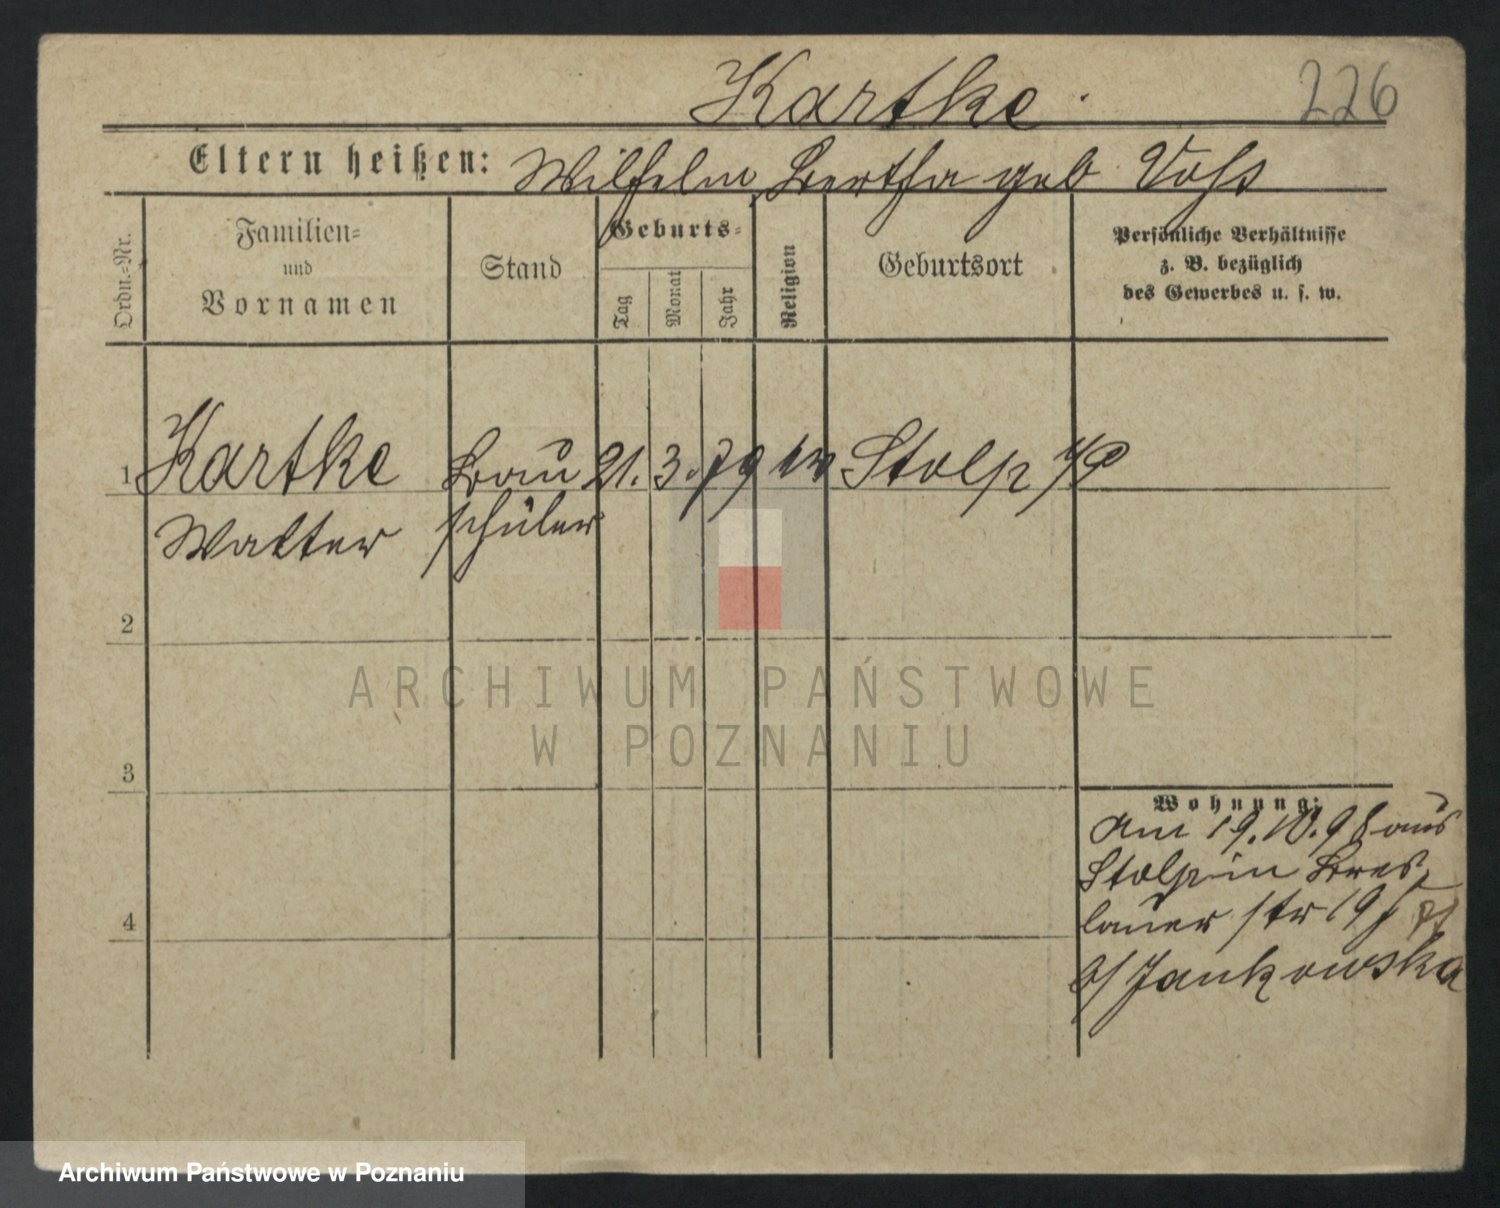 Kartke.
226
Eltern heißen: Wilhelm, Bertha geb Voß
Ordn.-Nr.
Familien- und Vornamen
Stand
Geburts-
Tag
Monat
Jahr
Religion
Geburtsort
Persönliche Verhältnisse
z. B. bezüglich
des Gewerbes u. s. w.
1 Kartke Bau 21. 3. 79 Stolp i/P
Walter schüler
2
3
4
Wohnung:
Am 19.10.98 aus
Stolp in Bres
lauer str 19
b/ Jankowska
ARCHIWUM PAŃSTWOWE
W POZNANIU
Archiwum Państwowe w Poznaniu